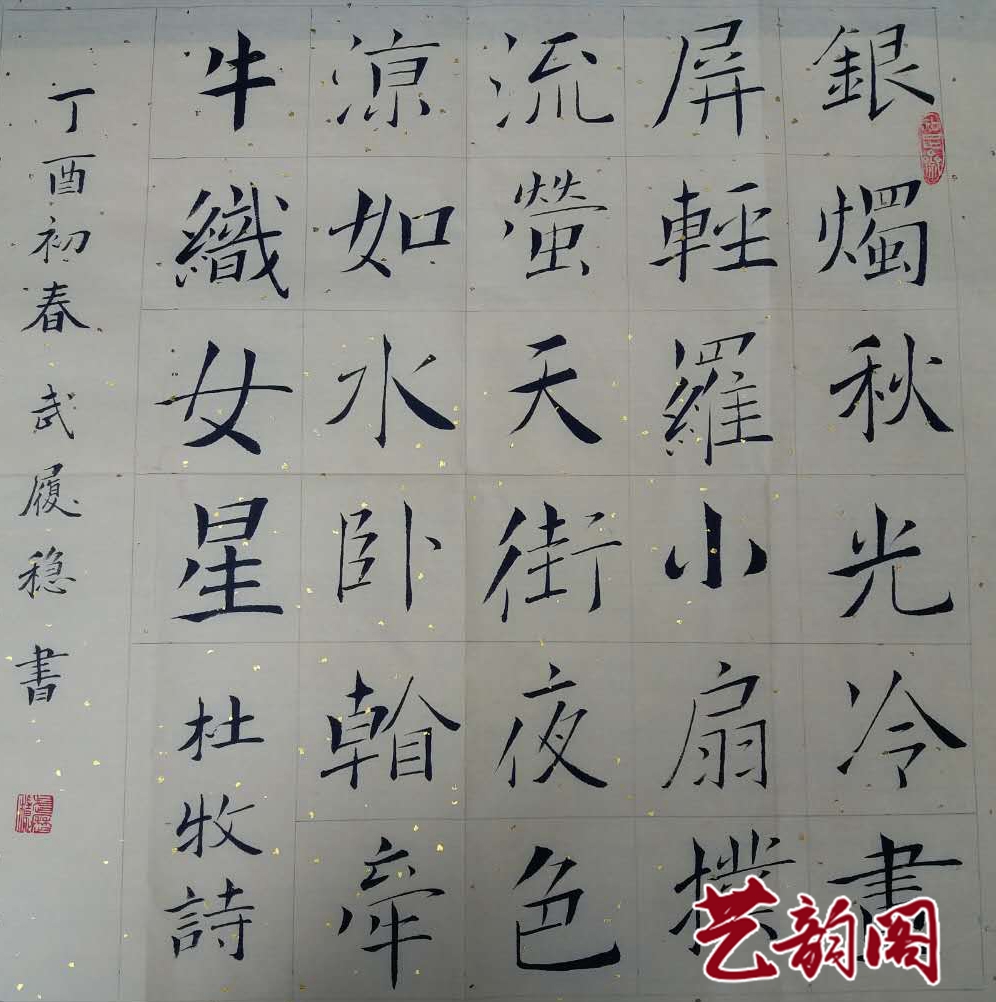 銀燭秋光冷畫
屏輕羅小扇撲
流螢天街夜色
涼如水卧看牽
牛織女星 杜牧詩
丁酉初春 武履稳書
艺韵阁